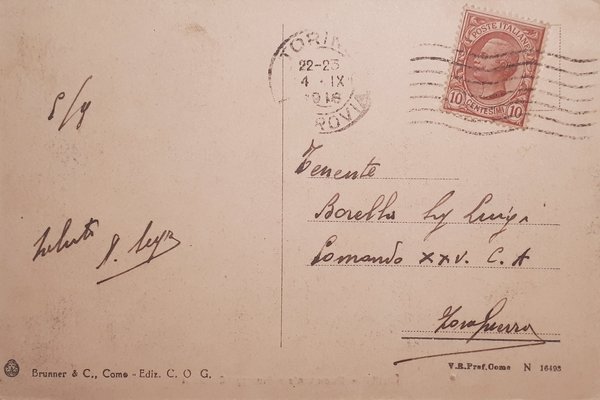 TORINO
22-23
4 . IX
1916
FERROVIA
POSTE ITALIANE
10 CENTESIMI 10
5/9
Saluti
Tenente
Borella Sig Luigi
Comando XXV. C. A
Zona Guerra
Brunner & C., Como - Ediz. C. O G.
V.R.Pref.Como N 16498